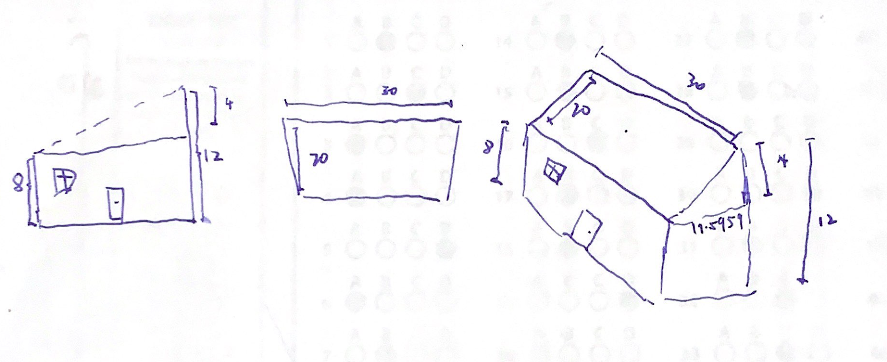 4
8
12
30
20
30
20
8
4
19.5959
12